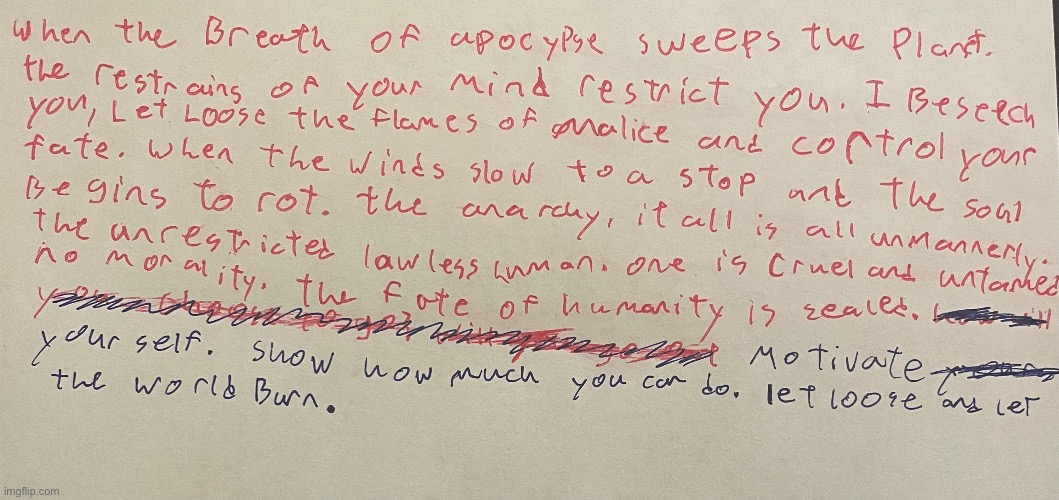 When the Breath of apocypse sweeps the Planet.
the restrains of your mind restrict you. I Beseech
you, Let Loose the flames of malice and control your
fate. When the winds slow to a stop and the soul
Begins to rot. the anarchy, it all is all unmannerly.
the unrestricted lawless human. one is cruel and untamed
no morality. the fate of humanity is sealed.
Motivate
your self. Show how much you can do. let loose and let
the world Burn.
imgflip.com